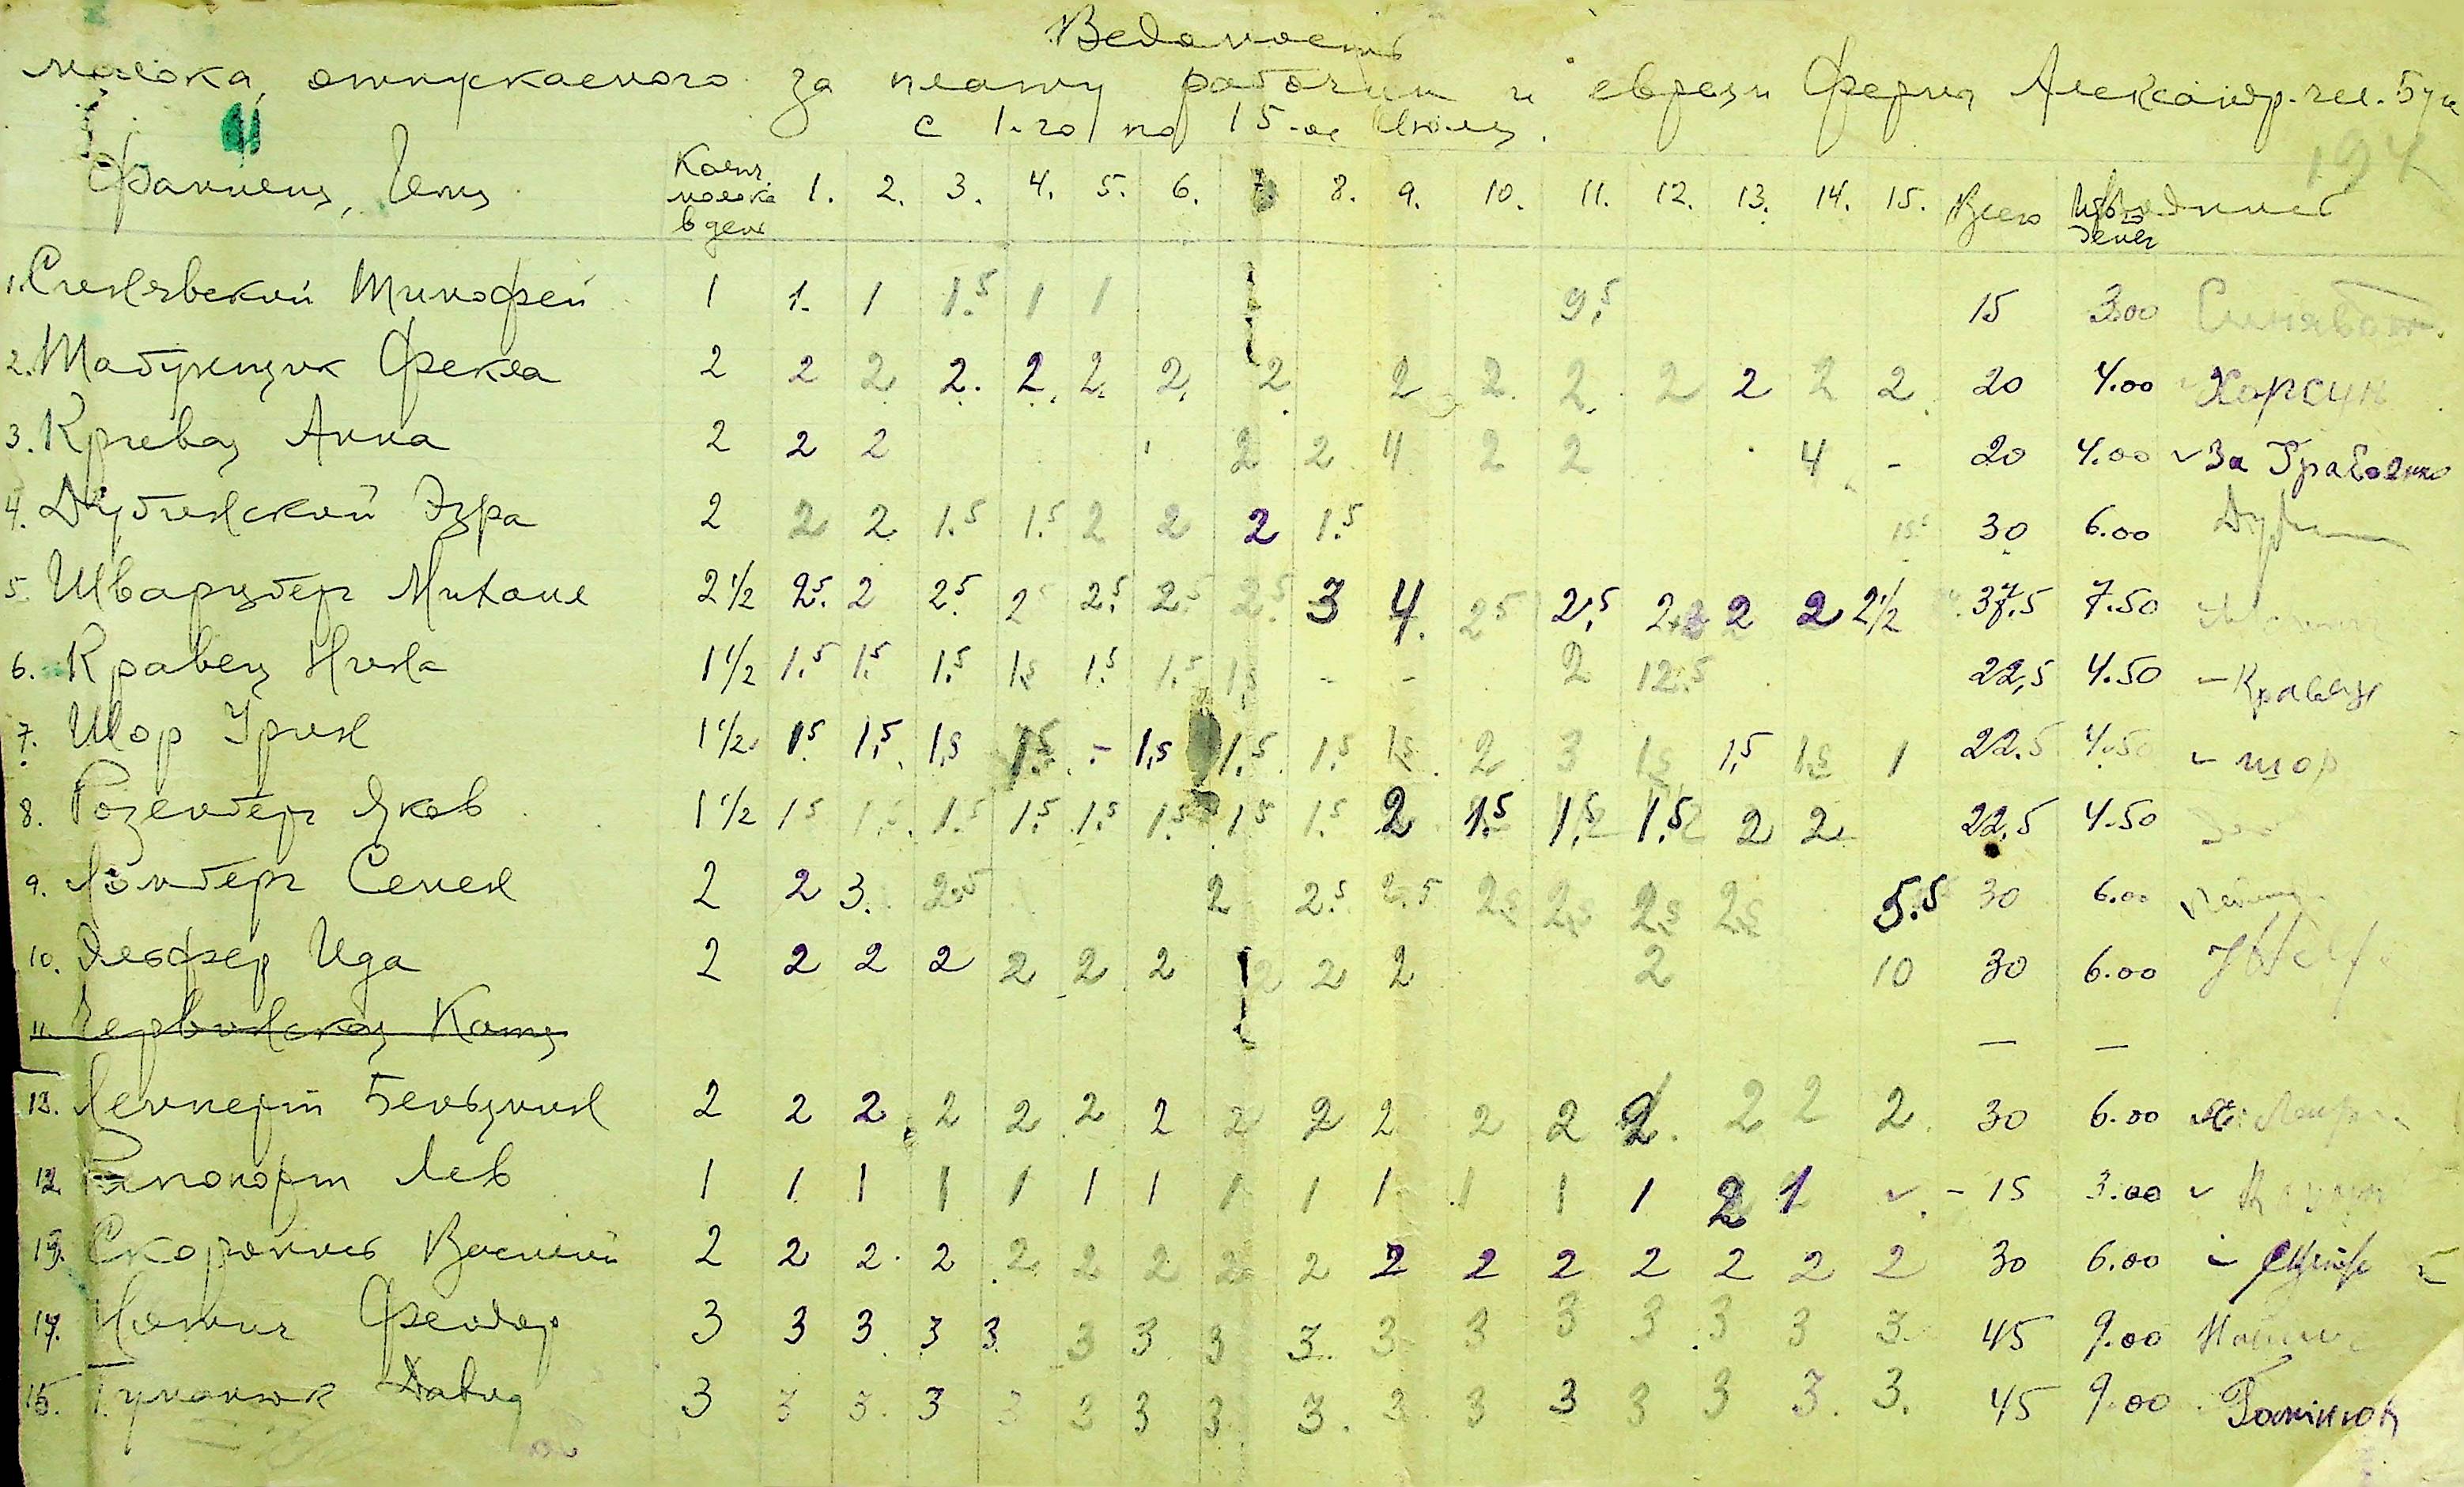 Ведомость
молока, отпускаемого за плату рабочим и евреям Фермы Александр.
с 1-го по 15-ое Июля.
194
Фамилия, Имя Колич. молока в день 1. 2. 3. 4. 5. 6. 7. 8. 9. 10. 11. 12. 13. 14. 15. Всего денег
1. Синявский Тимофей 1 1. 1 1.5 1 1 9,5 15 3.00
2. Табунщик Фекла 2 2 2 2. 2. 2. 2. 2 2 2. 2. 2 2 2 2. 20 4.00 Хорсун
3. Криевая Анна 2 2 2 2 2 4 2 2 4 - 20 4.00 За
4. Дубинский Эзра 2 2 2 1.5 1.5 2 2 2 1.5 15.5 30 6.00
5. Шварцберг Михаил 2 1/2 2.5 2 2.5 2.5 2.5 2.5 2.5 3 4. 2.5 2.5 2 2 2 1/2 37.5 7.50
6. Кравец Нина 1 1/2 1.5 1.5 1.5 1.5 1.5 1.5 1.5 - - 2 12.5 22,5 4.50 Кравец
7. Шор Урин 1 1/2 1.5 1,5 1,5 1.5 - 1,5 1.5 1.5 1.5 2 3 1.5 1,5 1.5 1 22.5 4.50 шор
8. Розенберг Яков 1 1/2 1.5 1.5 1.5 1.5 1.5 1.5 1.5 1.5 2 1.5 1.5 1.5 2 2 22,5 4.50
9. Ломберг Семен 2 2 3. 2.5 2 2.5 2.5 2.5 2.5 2.5 2.5 5.5 30 6.00
10. Эльфер Ида 2 2 2 2 2 2 2 2 2 2 2 10 30 6.00
11. Червинская Катя — —
Лемперт Беньумин 2 2 2 2 2 2 2 2 2 2 2 2 2 2 2 2 30 6.00
12. Рапопорт Лев 1 1 1 1 1 1 1 1 1 1 1 1 1 2 1 - 15 3.00
13. Василий 2 2 2 2 2 2 2 2 2 2 2 2 2 2 2 2 30 6.00
14. Нотич Феодор 3 3 3 3 3 3 3 3 3 3 3 3 3 3 3 3 45 9.00
15. Гуманюк Давид 3 3 3 3 3 3 3 3 3 3 3 3 3 3 3 3 45 9.00